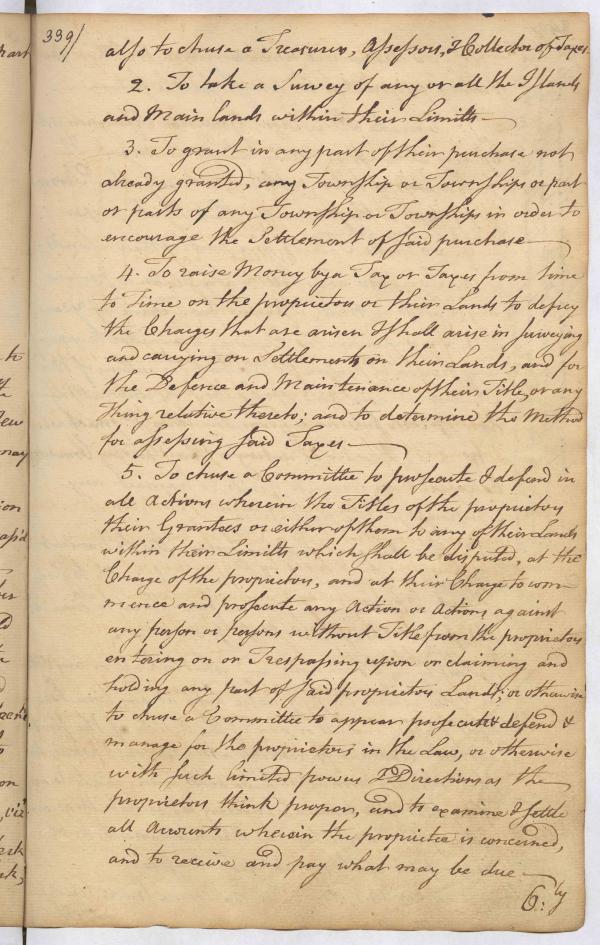 339/
also to chuse a Treasurer, Assessors, & Collector of Taxes.
2. To take a Survey of any or all the Islands
and Main lands within their Limitts
3. To grant in any part of their purchase not
already granted, any Township or Townships or part
or parts of any Township or Townships in order to
encourage the Settlement of said purchase
4. To raise Money by a Tax or Taxes from time
to Time on the proprietors or their Lands to defrey
the Charges that are arisen & shall arise in surveying
and carrying on Settlements on their Lands, and for
the Defence and Maintenance of their Title, or any
thing relative thereto; and to determine the Method
for assessing said Taxes
5. To chuse a Committee to prosecute & defend in
all Actions wherein the Titles of the proprietors
their Grantees or either of them to any of their Lands
within their Limitts which shall be disputed, at the
Charge of the proprietors, and at their Charge to com
mence and prosecute any Action or Actions against
any person or persons without Title from the proprietors
entering on or Trespassing upon or claiming and
holding any part of said proprietors Lands; or otherwise
to chuse a Committee to appear prosecute & defend &
manage for the proprietors in the Law, or otherwise
with such limited powers & Directions as the
proprietors think proper, and to examine & settle
all Accounts wherein the proprietee is concerned,
and to receive and pay what may be due
6:ly